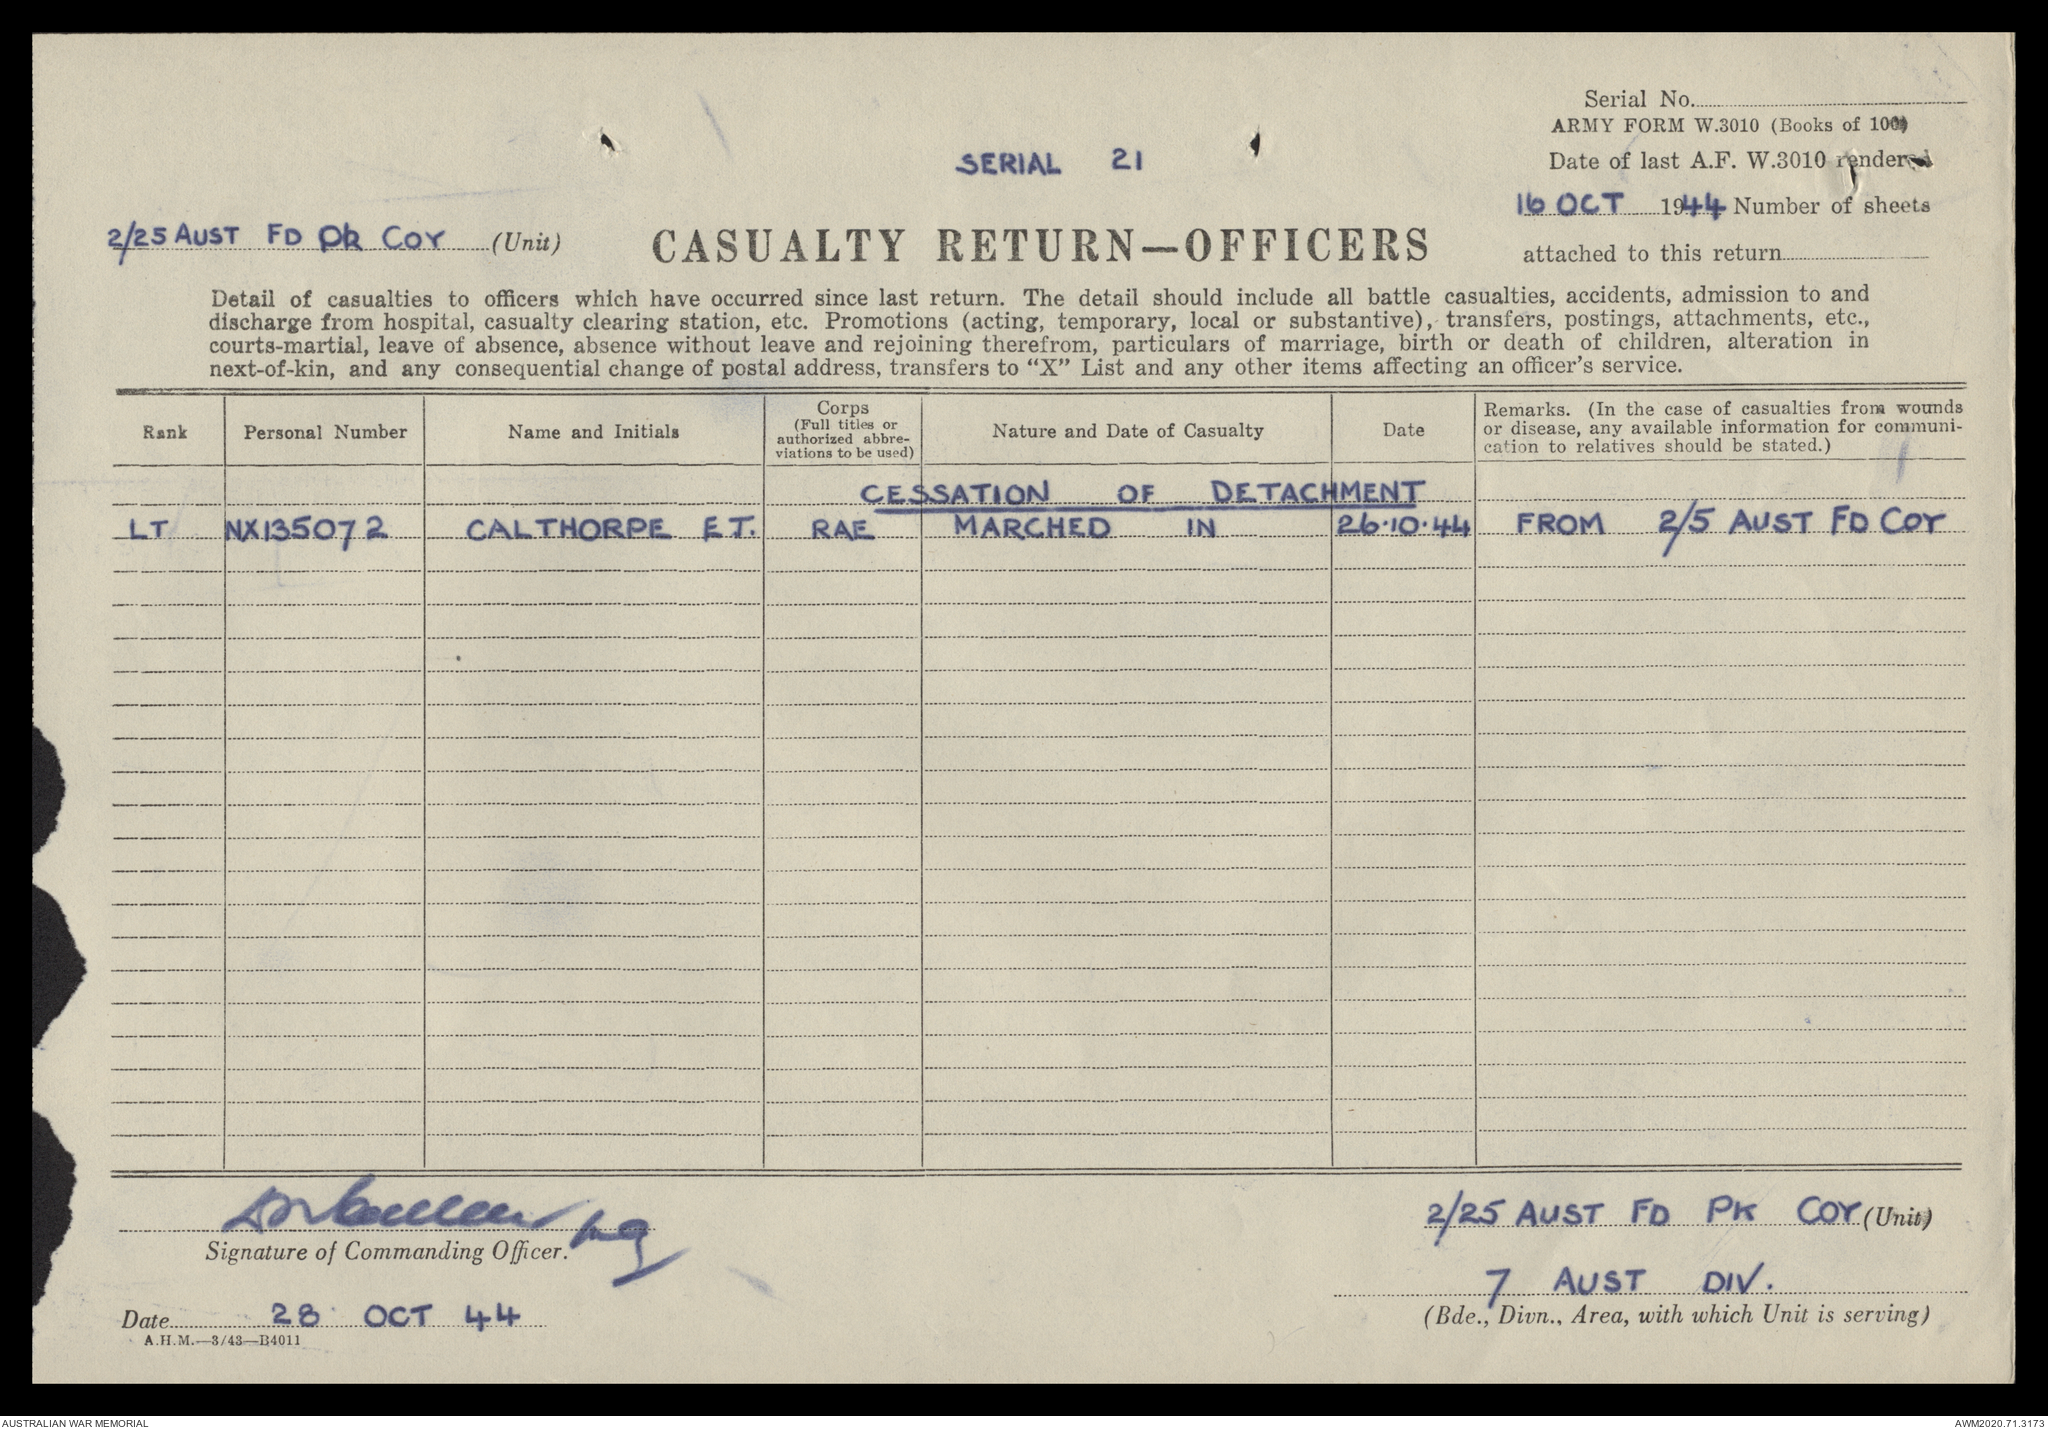 Serial No.
ARMY FORM W.3010 (Books of 100)
SERIAL 21
Date of last A.F. W.3010 rendered
16 OCT 1944 Number of sheets
attached to this return
2/25 AUST FD PK COY (Unit)
CASUALTY RETURN—OFFICERS
Detail of casualties to officers which have occurred since last return. The detail should include all battle casualties, accidents, admission to and
discharge from hospital, casualty clearing station, etc. Promotions (acting, temporary, local or substantive), transfers, postings, attachments, etc.,
courts-martial, leave of absence, absence without leave and rejoining therefrom, particulars of marriage, birth or death of children, alteration in
next-of-kin, and any consequential change of postal address, transfers to “X” List and any other items affecting an officer's service.
Rank
Personal Number
Name and Initials
Corps
(Full titles or
authorized abbre-
viations to be used)
Nature and Date of Casualty
Date
Remarks. (In the case of casualties from wounds
or disease, any available information for communi-
cation to relatives should be stated.)
CESSATION OF DETACHMENT
LT NX135072 CALTHORPE E.J. RAE MARCHED IN 26.10.44 FROM 2/5 AUST FD COY
Signature of Commanding Officer.
Date 28 OCT 44
A.H.M.—3/43—B4011
2/25 AUST FD PK COY (Unit)
7 AUST DIV.
(Bde., Divn., Area, with which Unit is serving)
AUSTRALIAN WAR MEMORIAL
AWM2020.71.3173